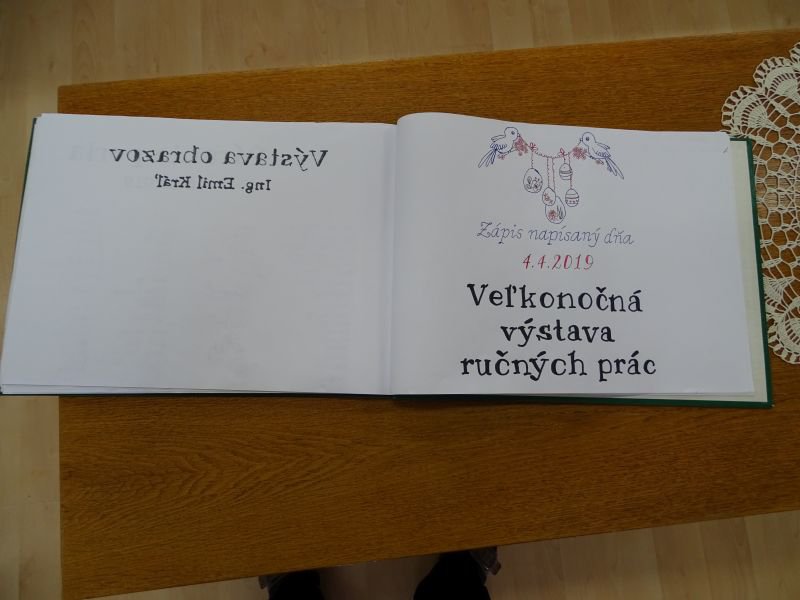 Výstava obrazov
Ing. Emil Kráľ
Zápis napísaný dňa
4.4.2019
Veľkonočná
výstava
ručných prác